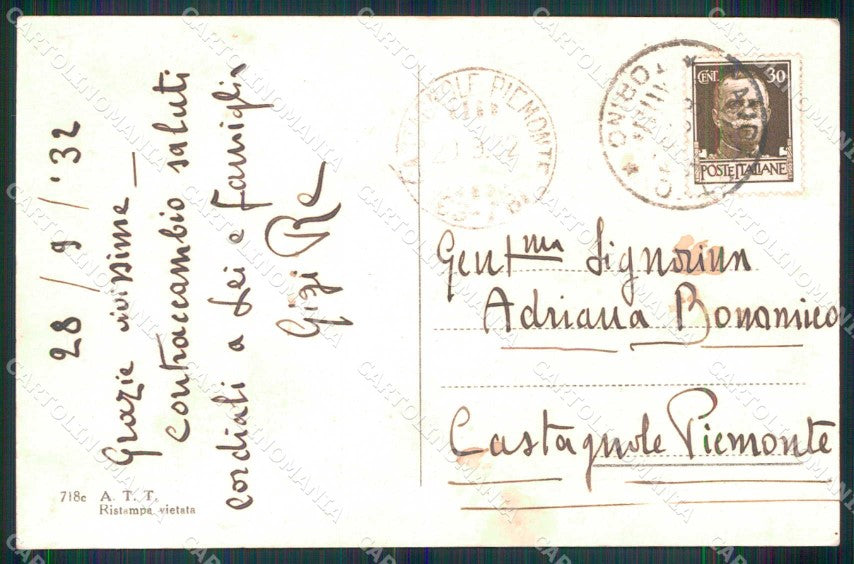 28 / 9 / '32
Grazie vivissime —
Contraccambio saluti
cordiali a Lei e Famiglia
Gigi Re
718c A. T. T.
Ristampa vietata
CASTAGNOLE PIEMONTE
TORINO
CENT. 30
POSTE ITALIANE
Gent.ma Signorina
Adriana Bonamico
Castagnole Piemonte
CARTOLINOMANIA